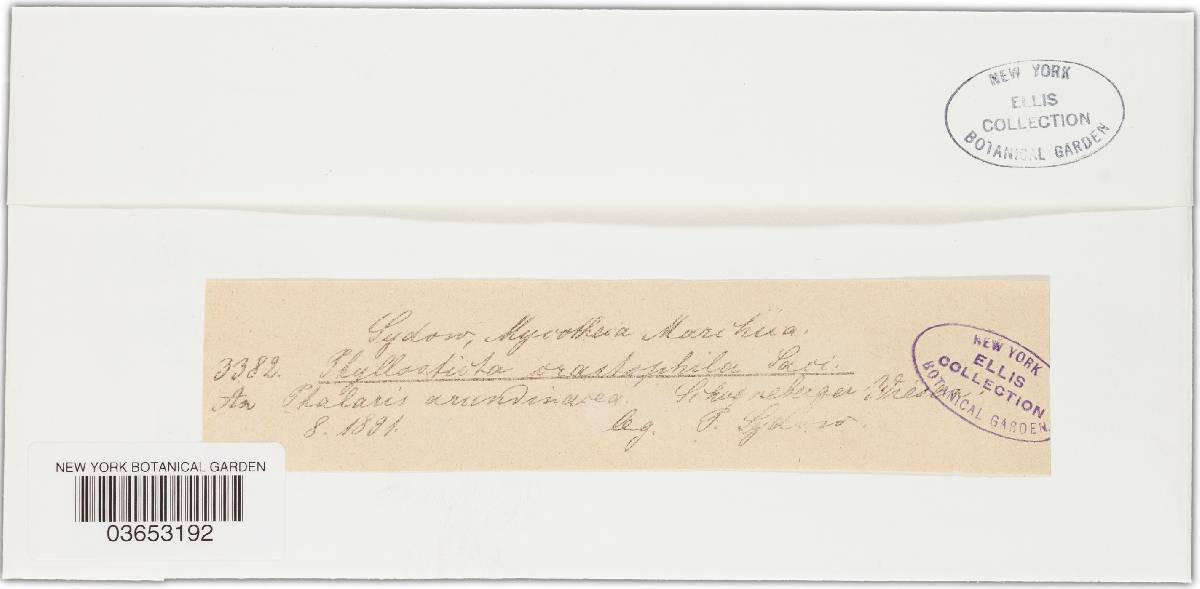 NEW YORK
ELLIS
COLLECTION
BOTANICAL GARDEN
Sydow, Mycotheca Marchica.
3382. Phyllosticta crastophila Sacc.
An Phalaris arundinacea. Schoeneberger Wiesen
8. 1891. leg. P. Sydow.
NEW YORK
ELLIS
COLLECTION
BOTANICAL GARDEN
NEW YORK BOTANICAL GARDEN
03653192